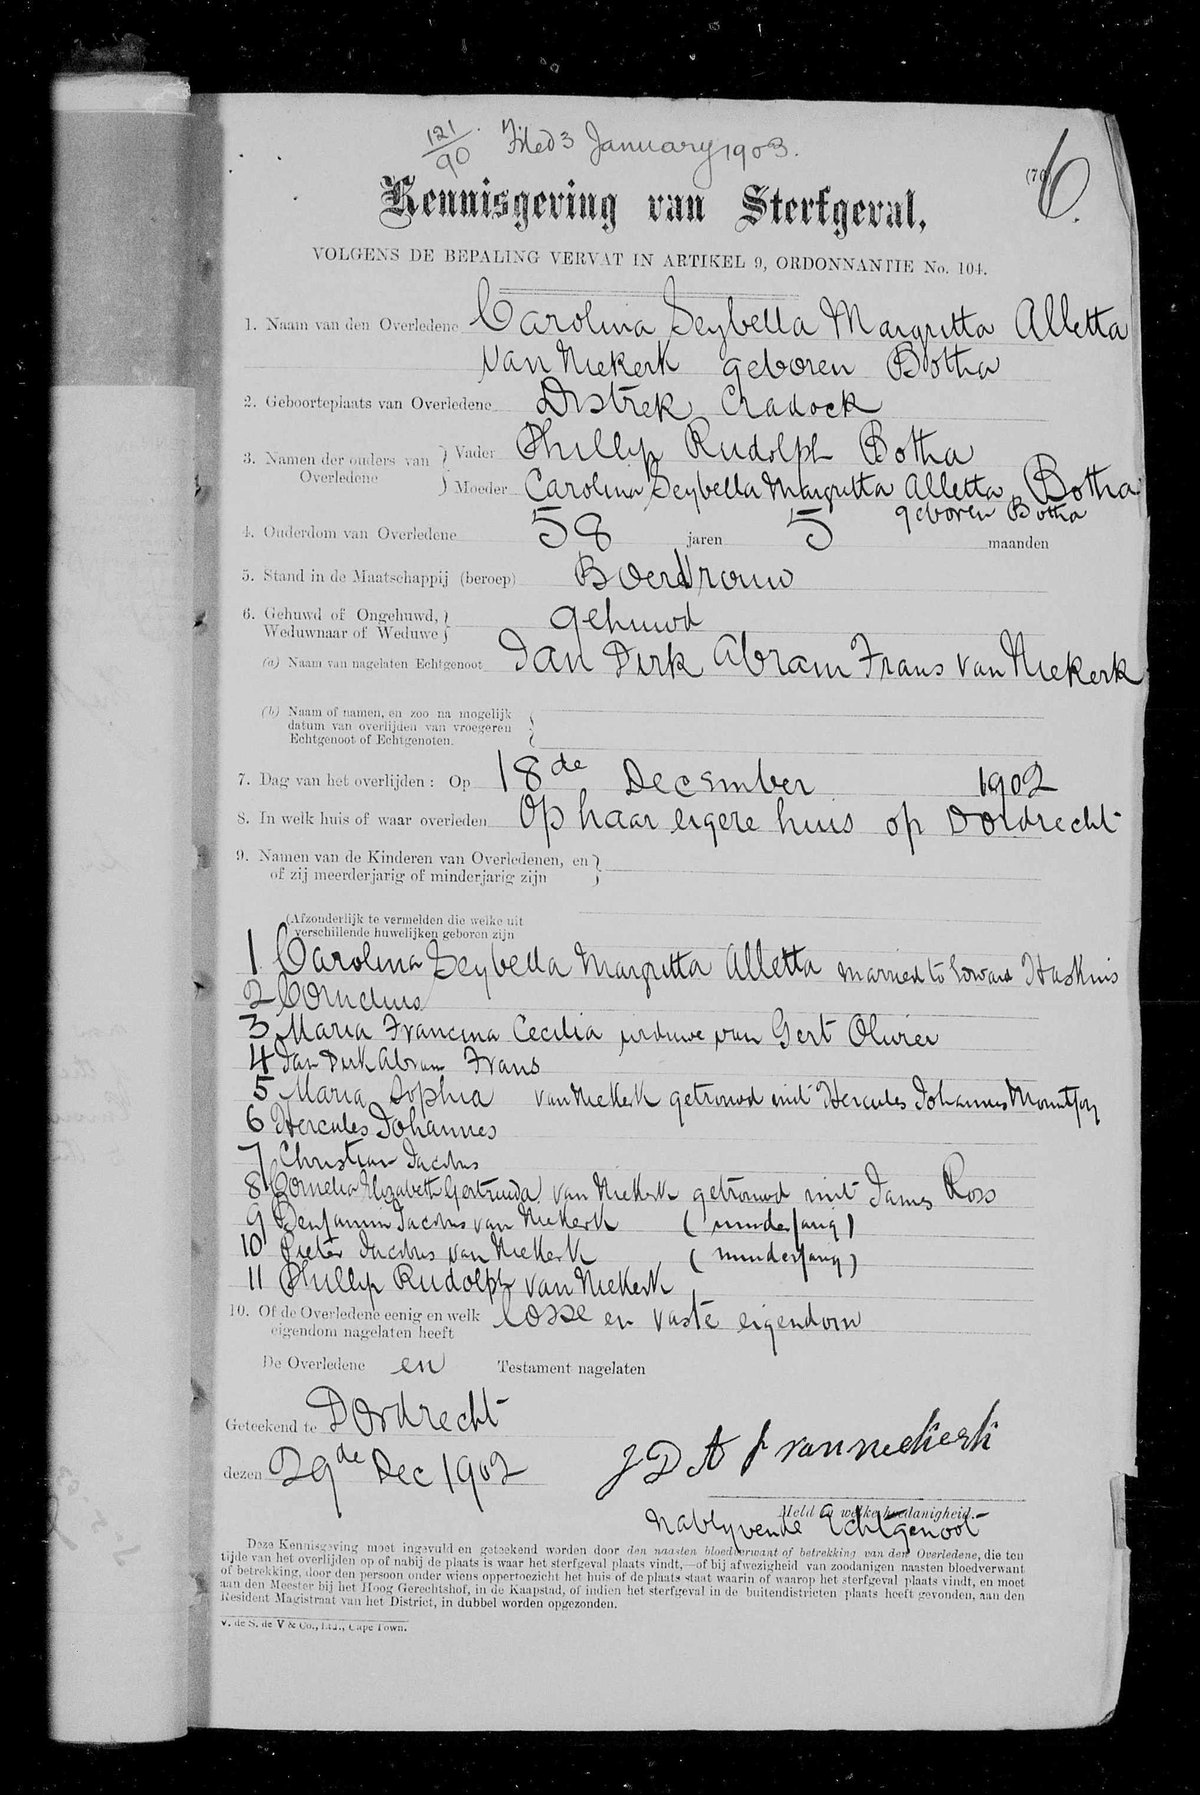 121/90. Filed 3 January 1903.
(76) 6.
Kennisgeving van Sterfgeval,
VOLGENS DE BEPALING VERVAT IN ARTIKEL 9, ORDONNANTIE No. 104.
1. Naam van den Overledene Carolina Seybella Margritta Alletta
van Niekerk geboren Botha
2. Geboorteplaats van Overledene Distrek Cradock
3. Namen der ouders van Overledene } Vader Phillip Rudolph Botha
Moeder Carolina Seybella Margritta Alletta Botha
geboren Botha
4. Ouderdom van Overledene 58 jaren 5 maanden
5. Stand in de Maatschappij (beroep) Boerdvrouw
6. Gehuwd of Ongehuwd, Weduwnaar of Weduwe } gehuwd
(a) Naam van nagelaten Echtgenoot Jan Dirk Abram Frans van Niekerk
(b) Naam of namen, en zoo na mogelijk
datum van overlijden van vroegeren
Echtgenoot of Echtgenoten.
7. Dag van het overlijden: Op 18de December 1902
8. In welk huis of waar overleden Op haar eigere huis op Dordrecht
9. Namen van de Kinderen van Overledenen, en
of zij meerderjarig of minderjarig zijn
(Afzonderlijk te vermelden die welke uit
verschillende huwelijken geboren zijn
1 Carolina Seybella Margritta Alletta married to Edward Haskins
2 Cornelius
3 Maria Francina Cecilia weduwe van Gert Olivier
4 Jan Dirk Abram Frans
5 Maria Sophia van Niekerk getrouwd mit Hercules Johannes
6 Hercules Johannes
7 Christian Jacobus
8 Cornelia Elizabeth Gertruida van Niekerk getrouwd mit James Ross
9 Benjamin Jacobus van Niekerk (minderjarig)
10 Pieter Jacobus van Niekerk (minderjarig)
11 Phillip Rudolph van Niekerk
10. Of de Overledene eenig en welk
eigendom nagelaten heeft losse en vaste eigendom
De Overledene en Testament nagelaten
Geteekend te Dordrecht
dezen 29de Dec 1902 J D A F van niekerk
Meld in welke hoedanigheid.
Nablyvende Echtgenoot
Deze Kennisgeving moet ingevuld en geteekend worden door den naasten bloedverwant of betrekking van den Overledene, die ten
tijde van het overlijden op of nabij de plaats is waar het sterfgeval plaats vindt,—of bij afwezigheid van zoodanigen naasten bloedverwant
of betrekking, door den persoon onder wiens oppertoezicht het huis of de plaats staat waarin of waarop het sterfgeval plaats vindt, en moet
aan den Meester bij het Hoog Gerechtshof, in de Kaapstad, of indien het sterfgeval in de buitendistricten plaats heeft gevonden, aan den
Resident Magistraat van het District, in dubbel worden opgezonden.
V. de S. de V & Co., Ltd., Cape Town.